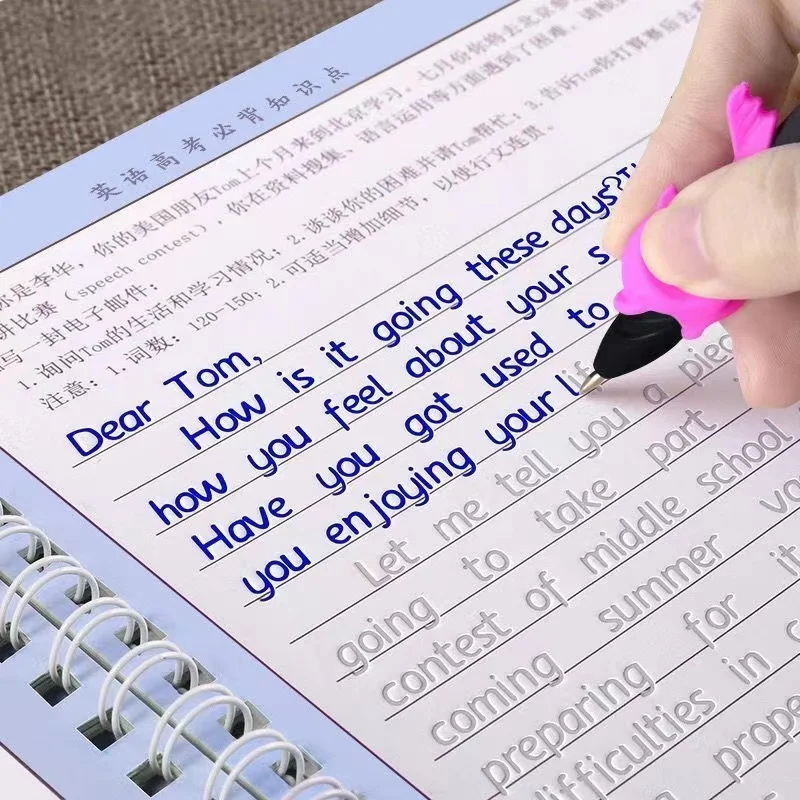 英语高考必背知识点
你是李华，你的美国朋友Tom上个月来到北京学习。七月份你将去北京参
讲比赛（speech contest），你在资料搜集、语言运用等方面遇到了困难，请根
写一封电子邮件：
1.询问Tom的生活和学习情况；2.谈谈你的困难并请Tom帮忙；3.告诉Tom你打算赛后去看
注意：1.词数：120-150；2.可适当增加细节，以使行文连贯。
Dear Tom,
How is it going these days?
how you feel about your s
Have you got used to
you enjoying your life
Let me tell you a piec
going to take part
contest of middle school
coming summer va
preparing for it
difficulties in c
prope